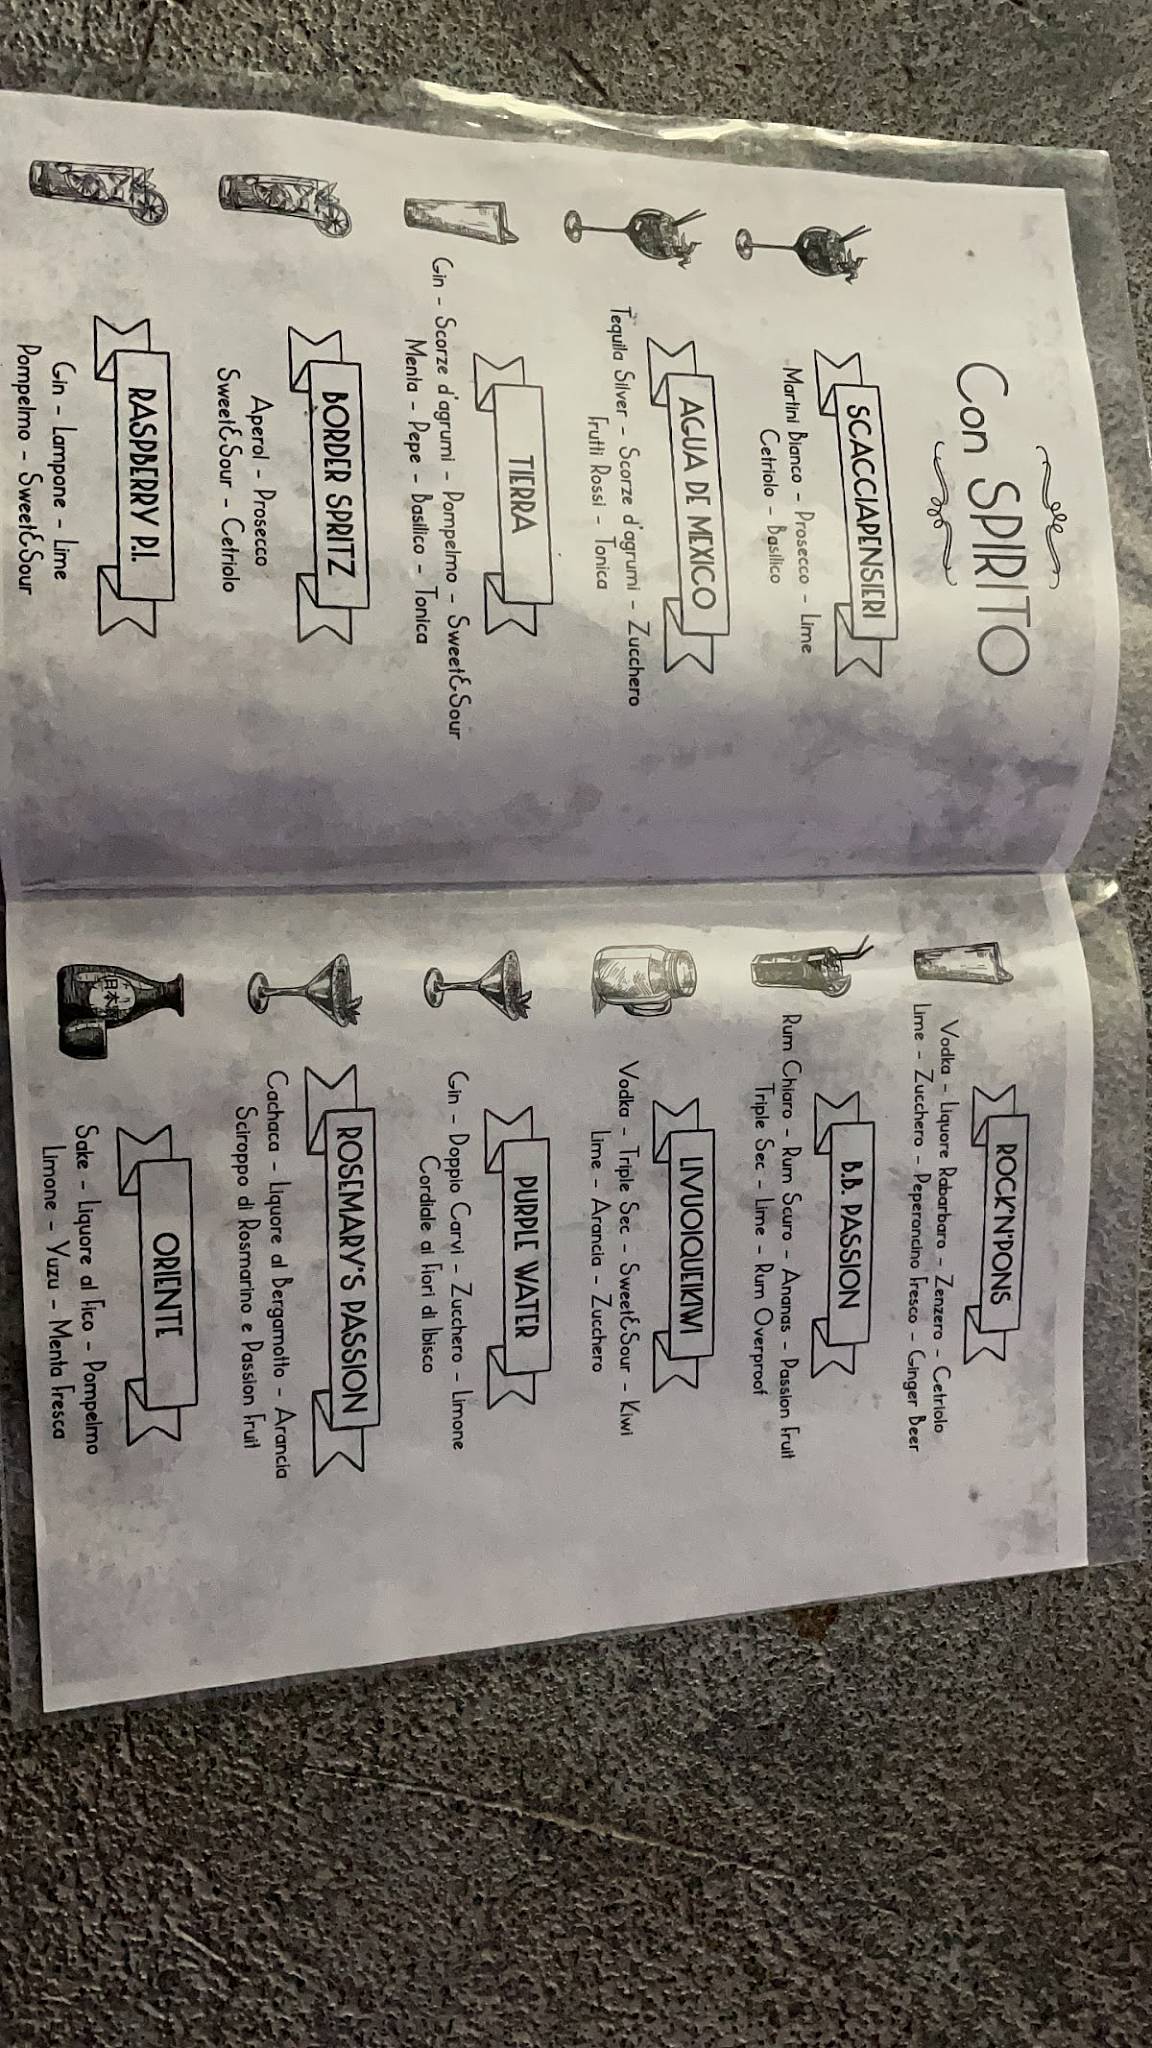 Con SPIRITO
SCACCIAPENSIERI
Martini Bianco - Prosecco - Lime
Cetriolo - Basilico
AGUA DE MEXICO
Tequila Silver - Scorze d'agrumi - Zucchero
Frutti Rossi - Tonica
TIERRA
Gin - Scorze d'agrumi - Pompelmo - Sweet&Sour
Menta - Pepe - Basilico - Tonica
BORDER SPRITZ
Aperol - Prosecco
Sweet&Sour - Cetriolo
RASPBERRY P.I.
Gin - Lampone - Lime
Pompelmo - Sweet&Sour
ROCK'N'PONS
Vodka - Liquore Rabarbaro - Zenzero - Cetriolo
Lime - Zucchero - Peperoncino Fresco - Ginger Beer
B.B. PASSION
Rum Chiaro - Rum Scuro - Ananas - Passion Fruit
Triple Sec - Lime - Rum Overproof
LIVUOIQUEIKIWI
Vodka - Triple Sec - Sweet&Sour - Kiwi
Lime - Arancia - Zucchero
PURPLE WATER
Gin - Doppio Carvi - Zucchero - Limone
Cordiale ai Fiori di Ibisco
ROSEMARY'S PASSION
Cachaca - Liquore al Bergamotto - Arancia
Sciroppo di Rosmarino e Passion Fruit
日本
ORIENTE
Sake - Liquore al Fico - Pompelmo
Limone - Yuzu - Menta Fresca